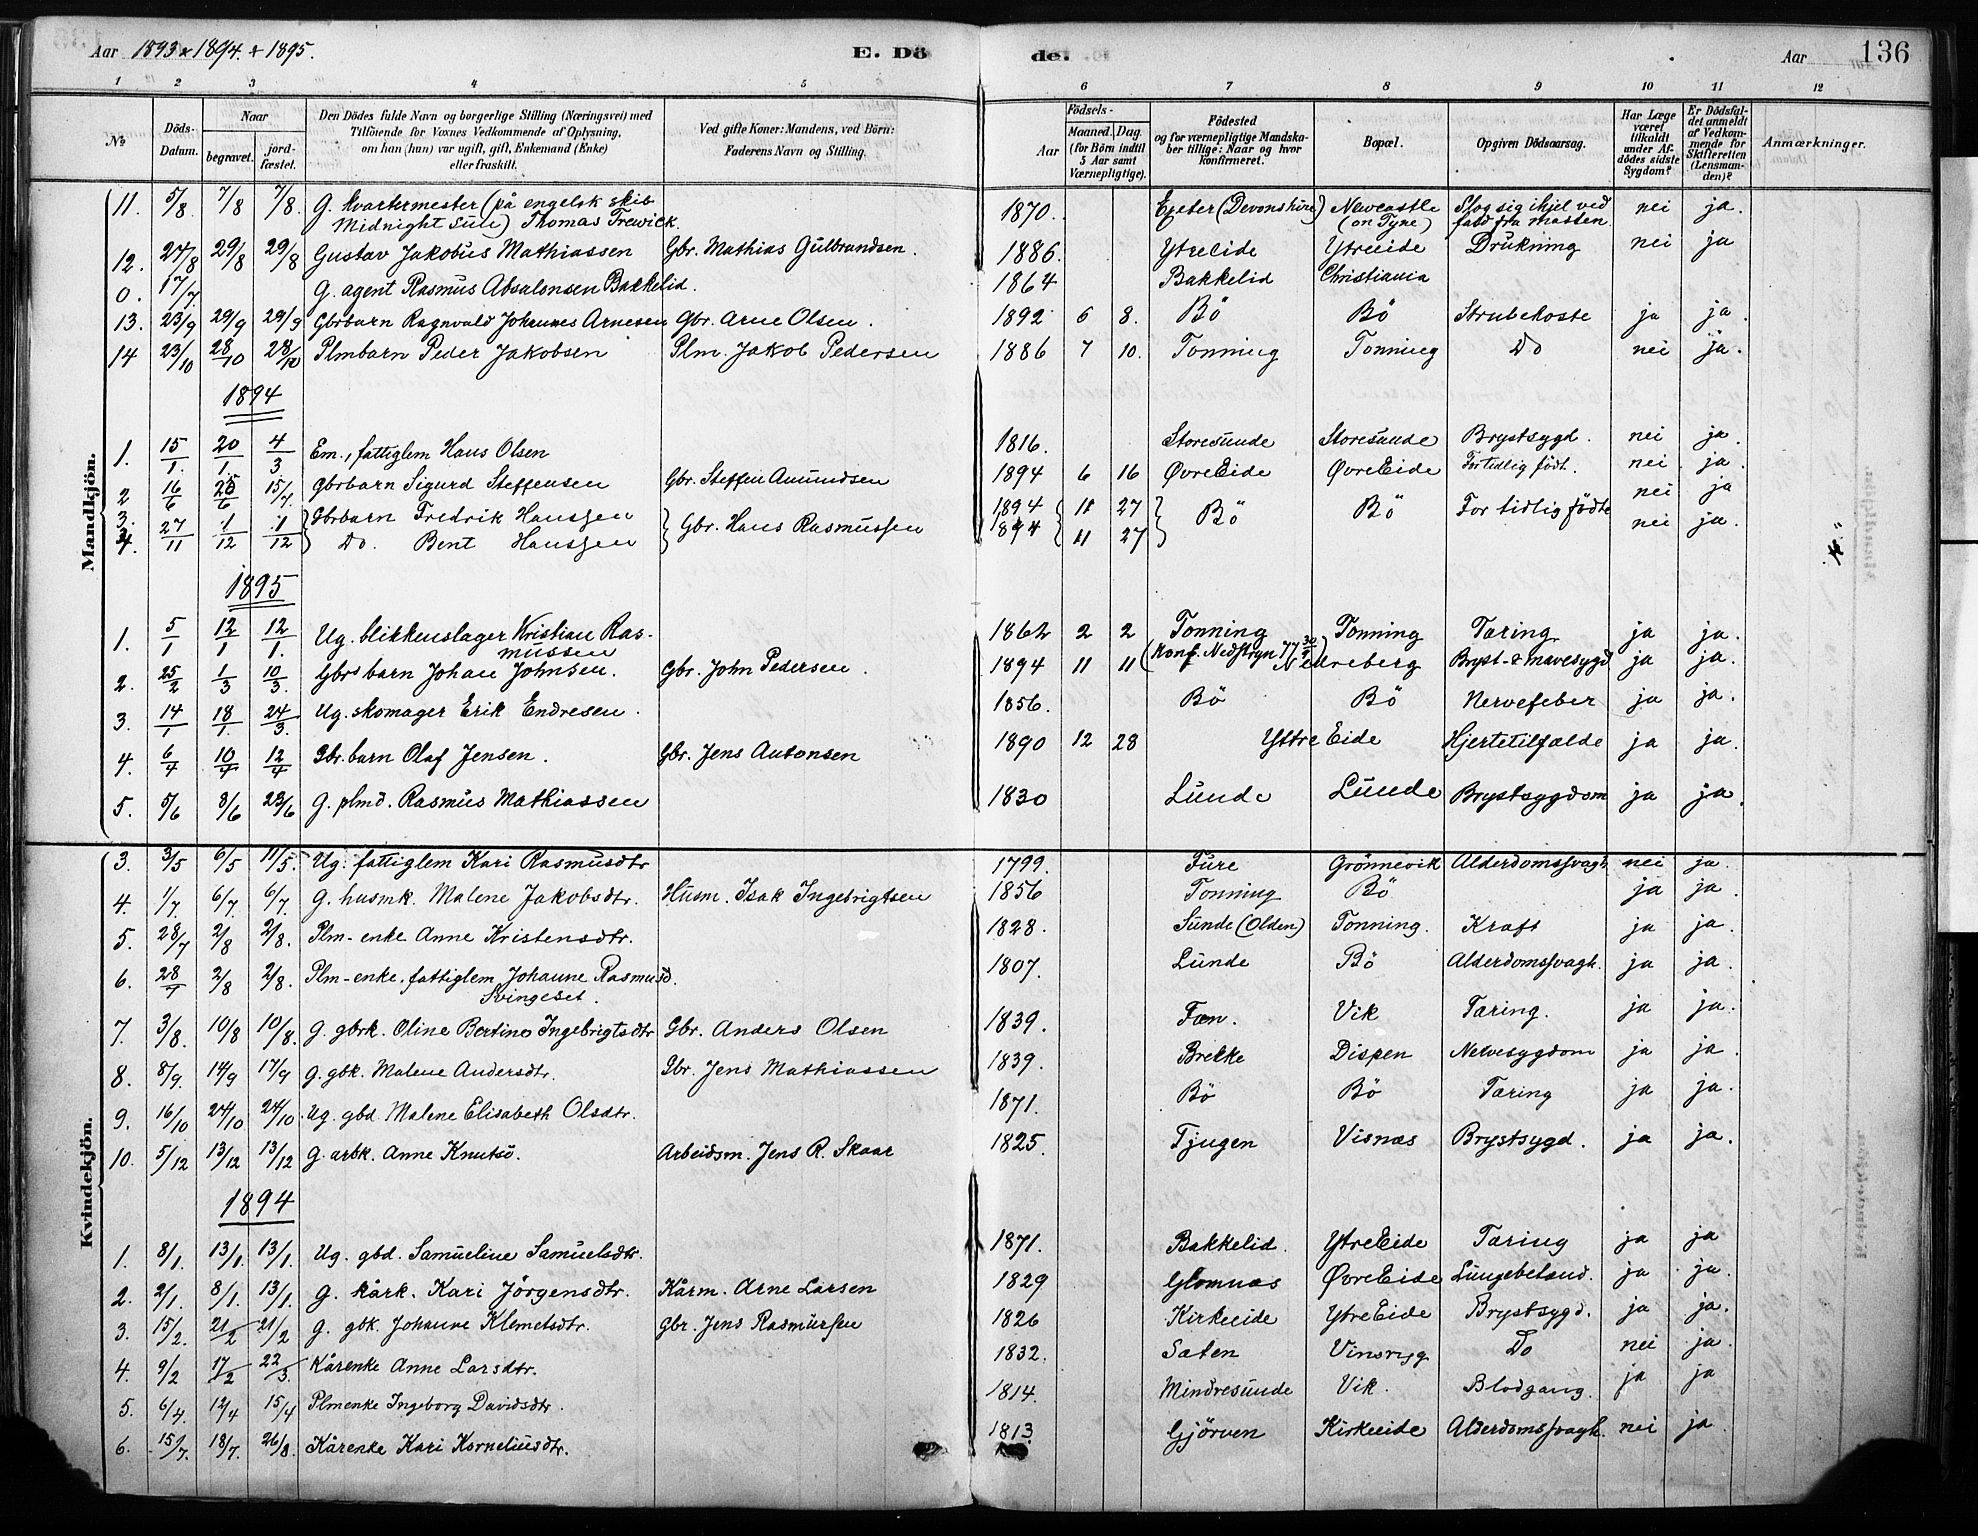 Aar 1893 & 1894. + 1895. E. Dö de. Aar 136
1 2 3 4 5 6 7 8 9 10 11 12
No. Döds-Datum. Naar begravet. jord-fæstet. Den Dödes fulde Navn og borgerlige Stilling (Næringsvei) med Tilföiende for Voxnes Vedkommende af Oplysning, om han (hun) var ugift, gift, Enkemand (Enke) eller fraskilt. Ved gifte Koner: Mandens, ved Börn: Faderens Navn og Stilling. Aar Födsels- Maaned. Dag. (for Börn indtil 5 Aar samt Værnepligtige). Födested og for værnepligtige Mandskaber tillige: Naar og hvor konfirmeret. Bopæl. Opgiven Dödsaarsag. Har Læge været tilkaldt under Afdödes sidste Sygdom? Er Dödsfaldet anmeldt af Vedkommende for Skifteretten (Lensmanden)? Anmærkninger.
Mandkjön.
11. 5/8 7/8 7/8. G. kvartermester (på engelsk skib Midnight Sun) Thomas Trewick. 1870. Exeter (Devonshire) Newcastle (on Tyne) Slog sig ihjel ved fald fra masten nei ja.
12. 24/8 29/8 29/8 Gustav Jakobus Mathiassen Gbr. Mathias Gulbrandsen. 1886. Ytreeide Ytreeide Drukning nei ja
0. 17/7. G. agent Rasmus Absalonsen Bakkelid. 1864 Bakkelid Christiania
13. 23/9 29/9 29/9 Gbrbarn Ragnvald Johannes Arnesen Gbr. Arne Olsen. 1892 6 8. Bö Bö Strubehoste ja ja.
14 23/10 28/10 28/10 Plmbarn Peder Jakobsen Plm. Jakob Pedersen 1886 7 10. Tonning Tonning Do nei ja.
1894
1. 15/1. 20/1. 4/3 Em., fattiglem Hans Olsen 1816. Storesunde Storesunde Brystsygd. nei ja.
2 16/6 25/6 15/7 Gbrbarn Sigurd Steffensen Gbr. Steffen Amundsen 1894 6 16 ØvreEide ØvreEide For tidlig født. nei ja.
3. 27/11 1/12 1/12 Gbrbarn Fredrik Hanssen Gbr. Hans Rasmussen 1894 11 27 Bö Bö For tidlig födte nei ja
4. Do. Bent Hanssen 1894 11 27 nei ja.
1895
1. 5/1 12/1 12/1. Ug. blikkenslager Kristian Rasmussen 1862 2 2 Tonning (konf. Nedstryn 77 30/9) Tonning Tæring ja ja.
2. 25/2 1/3 10/3. Gbrs barn Johan Johnsen. Gbr. John Pedersen. 1894 11 11 Nedreberg Bryst- & mavesygd ja ja.
3. 14/1 18/1. 24/3. Ug. skomager Erik Endresen. 1856. Bö Bö Nervefeber ja ja.
4. 6/4 10/4 12/4 Gbr.barn Olaf Jensen. Gbr. Jens Antonsen 1890 12 28 Yttre Eide Hjertetilfælde ja ja.
5. 5/6 8/6 23/6 G. plmd. Rasmus Mathiassen 1830 Lunde Lunde Brystsygdom ja ja.
Kvindekjön.
3. 3/5 6/5 11/5. Ug. fattiglem Kari Rasmusdtr 1799. Fure Grönnevik Alderdomssvagh. nei ja.
4. 1/7. 6/7 6/7. G. husmk. Malene Jakobsdtr. Husm. Isak Ingebrigtsen 1856 Tonning Bö ja ja.
5. 28/7 2/8 2/8. Plm- enke Anne Kristensdtr. 1828. Sunde (Olden) Tonning. Kraft ja ja.
6. 28/7 2/8 2/8. Plm- enke, fattiglem Johanne Rasmusd. Svingeset. 1807. Lunde Bö Alderdomssvagh. ja ja.
7. 3/8. 10/8 10/8. G. gbrk. Oline Bertine Ingebrigtsdtr Gbr. Anders Olsen 1839. Fæn. Vik Tæring. ja ja.
8. 8/9. 14/9 17/9 G. gbk. Malene Andersdtr. Gbr. Jens Mathiassen 1839. Brekke Dispen Nervesygdom ja ja.
9. 16/10 24/10 24/10. Ug. gbd. Malene Elisabeth Olsdtr. 1871. Bö Bö Tæring ja ja.
10. 5/12 13/12 13/12 G. arbk. Anne Knutsd. Arbeidsm. Jens R. Skaar 1825. Tjugen Visnæs Brystsygd. ja ja.
1894
1. 8/1. 13/1. 13/1. Ug. gbd. Samueline Samuelsdtr. 1871. Bakkelid. YtreEide Tæring ja ja
2. 2/1. 8/1. 13/1. G. kårk. Kari Jörgensdtr. Kårm. Arne Larsen 1829 Glomnæs ØvreEide Lungebetænd. ja ja.
3. 15/2. 21/2 21/2 G. gbk. Johanne Klemetsdtr. Gbr. Jens Rasmussen 1826 Kirkeeide YtreEide Brystsygd. ja ja.
4. 9/2 17/2 22/3. Kårenke Anne Larsdtr. 1832. Sæten Vinsryg Do nei ja.
5. 6/4. 12/4 15/4 Plmenke Ingeborg Davidsdtr. 1814. Mindresunde Vik. Blodgang. ja ja
6. 15/7. 18/7 26/8. Kårenke Kari Korneliusdtr. 1813. Gjörven Kirkeeide Alderdomssvagh. nei ja.